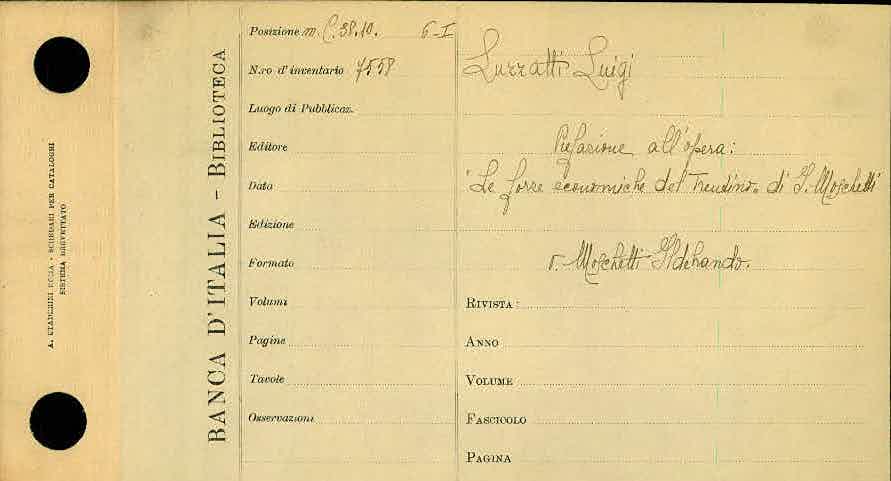 A. STADERINI ROMA - SCHEDARI PER CATALOGHI
SISTEMA BREVETTATO
BANCA D'ITALIA - BIBLIOTECA
Posizione m C.38.10. 6-I
N.ro d'inventario 7558
Luogo di Pubblicaz.
Editore
Data
Edizione
Formato
Volumi
Pagine
Tavole
Osservazioni
Luzzatti Luigi
Prefazione all'opera:
"Le forze economiche del Trentino" di I. Moschetti
v. Moschetti Ildebrando.
RIVISTA:
ANNO
VOLUME
FASCICOLO
PAGINA